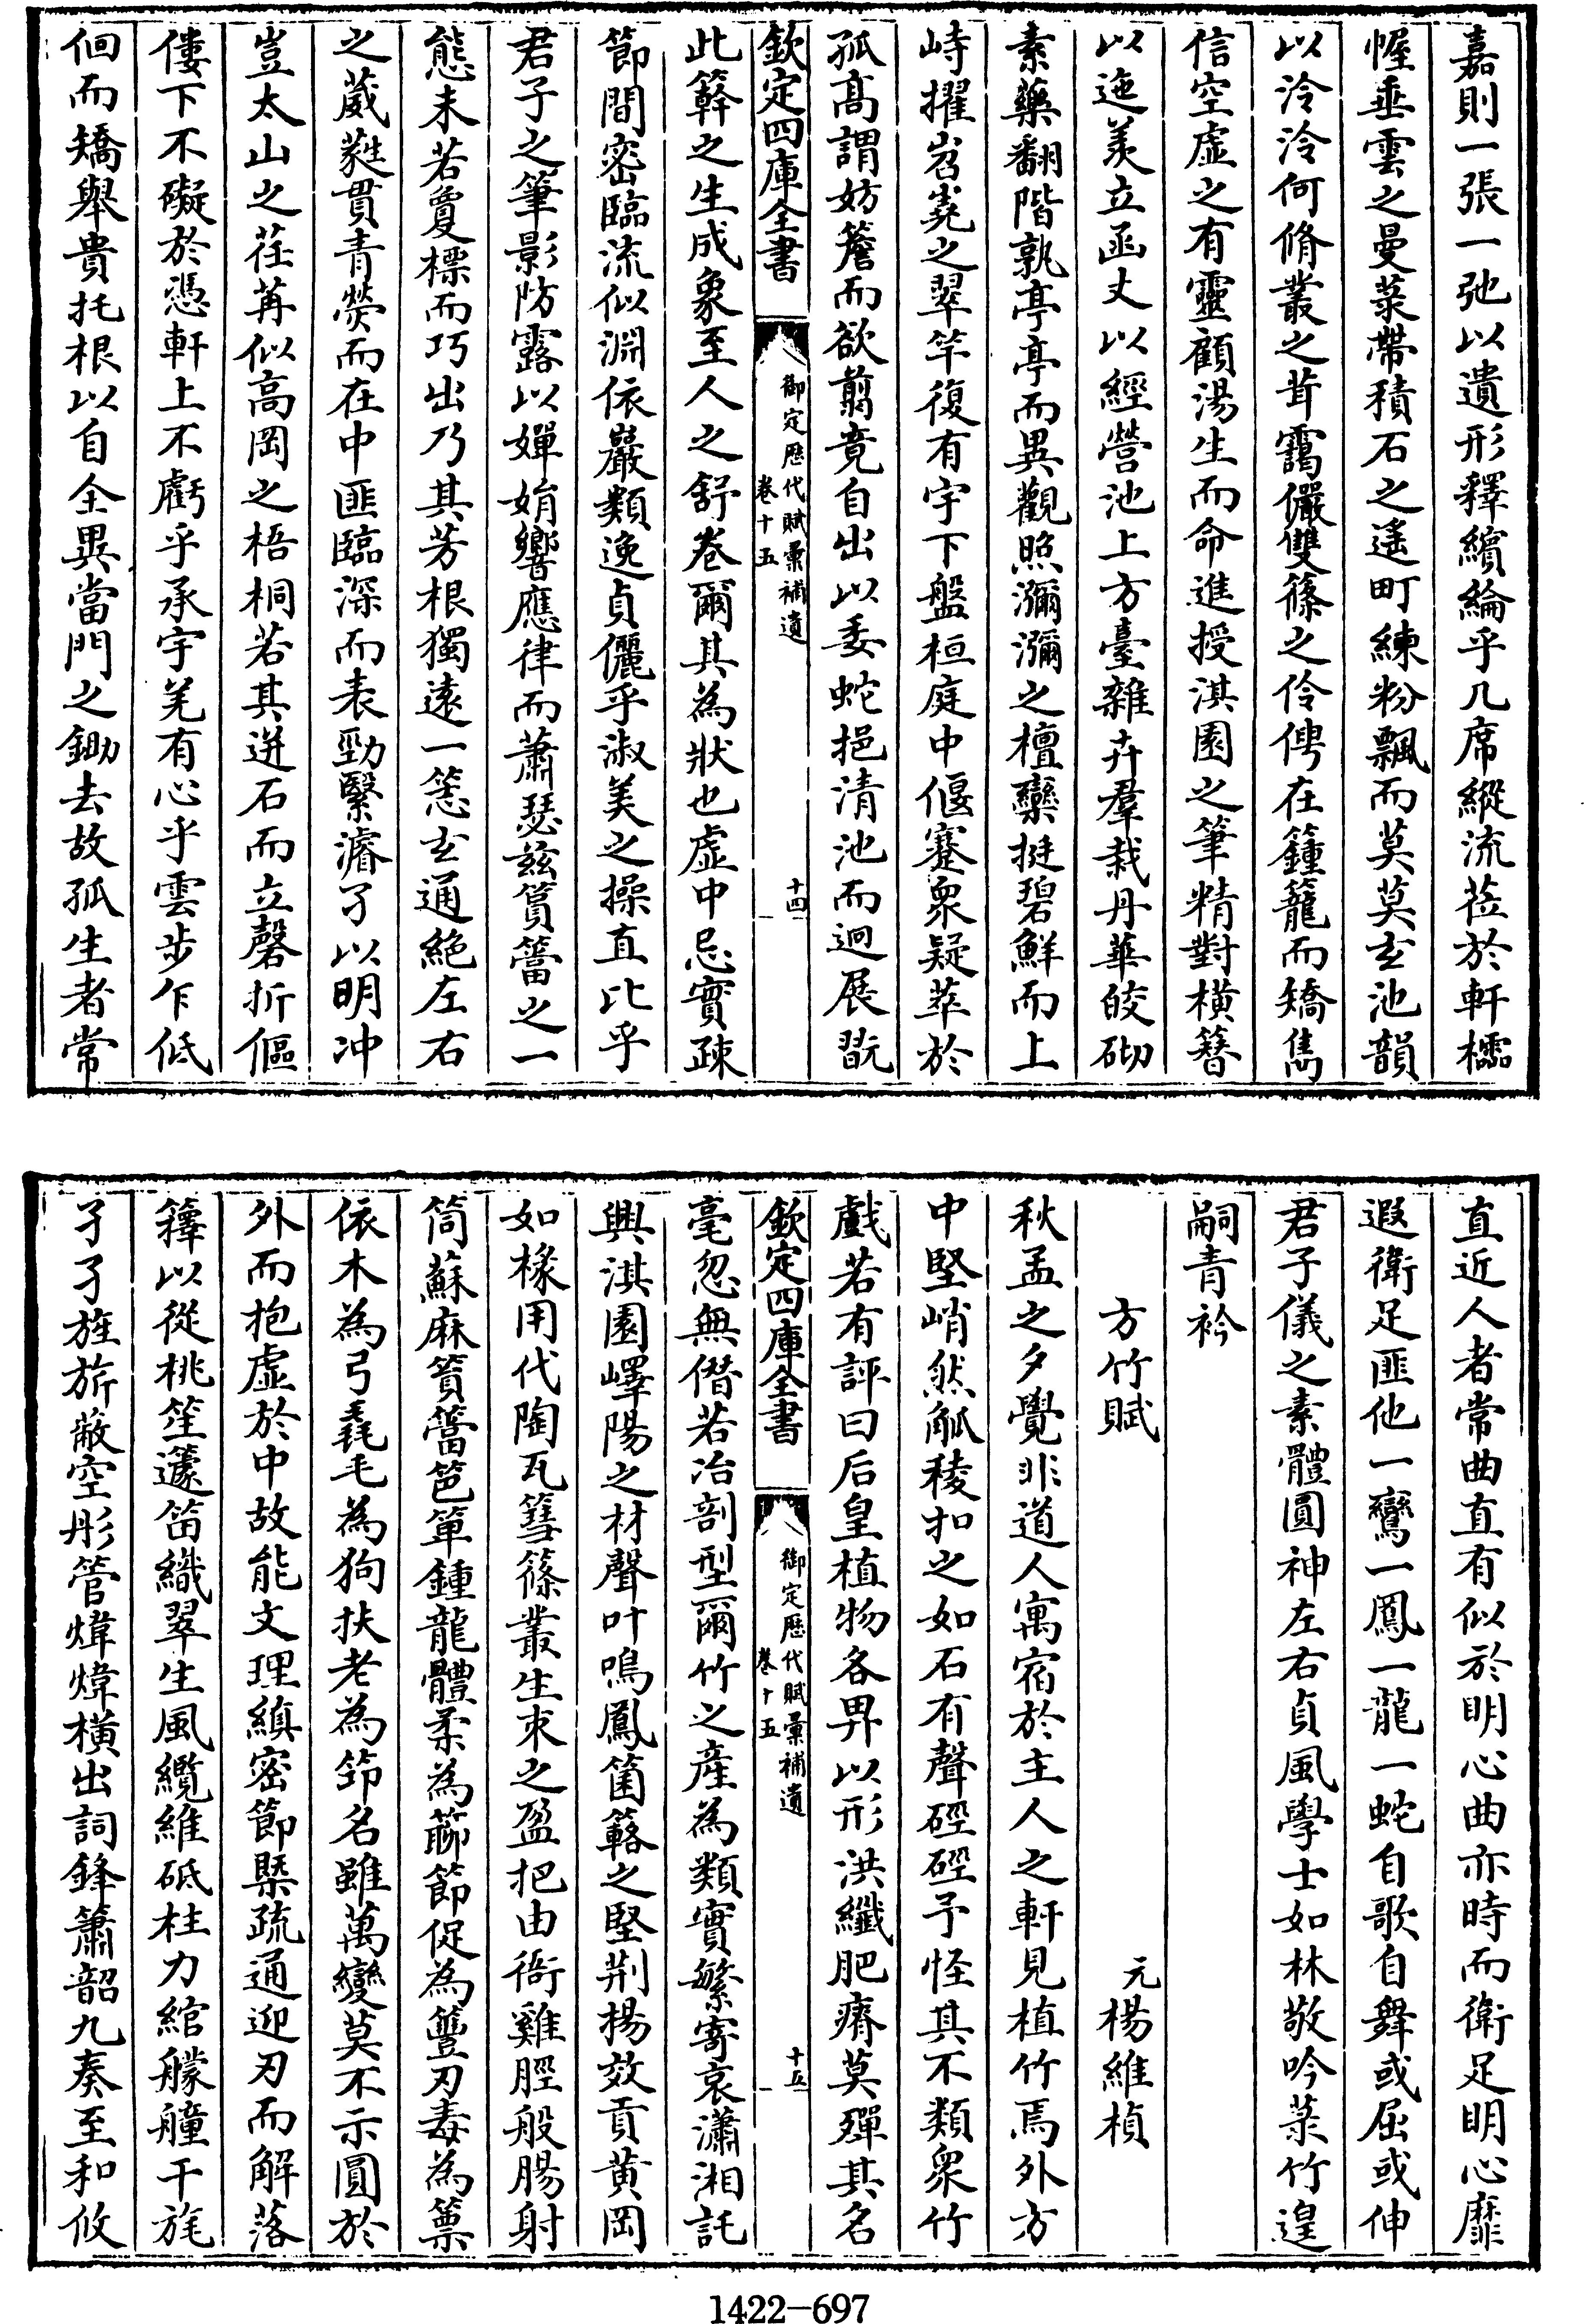 嘉則一張一弛以遺形釋纘綸乎几席縱流莅於軒櫺
幄垂雲之曼菉帶積石之遙町練粉飄而莫莫玄池韻
以泠泠何脩叢之茸靄儼雙篠之伶俜在籦籠而矯雋
信空虛之有靈顧湯生而命進授淇園之筆精對橫簪
以迤羨立函丈以經營池上方臺雜卉羣栽丹華皎砌
素藥翻階孰亭亭而異觀照瀰瀰之檀欒挺碧鮮而上
峙擢岧嶤之翠竿復有宇下盤桓庭中偃蹇衆疑萃於
孤高謂妨簷而欲翦竟自出以委蛇挹清池而迥展翫
欽定四庫全書
御定歷代賦彙補遺
卷十五
十四
此簳之生成象至人之舒卷爾其為狀也虛中忌實疎
節間密臨流似淵依巖類逸貞儷乎淑美之操直比乎
君子之筆影防露以嬋娟響應律而蕭瑟茲篔簹之一
態未若敻標而巧出乃其芳根獨遠一箬玄通絕左右
之葳蕤貫青熒而在中匪臨深而表勁緊濬了以明冲
豈太山之荏苒似高岡之梧桐若其迸石而立磬折傴
僂下不礙於憑軒上不虧乎承宇羌有心乎雲步乍低
佪而矯舉貴托根以自全異當門之鋤去故孤生者常
直近人者常曲直有似於明心曲亦時而衛足明心靡
遐衛足匪他一鸞一鳳一龍一蛇自歌自舞或屈或伸
君子儀之素體圓神左右貞風學士如林敬吟菉竹遑
嗣青衿
方竹賦 元楊維楨
秋孟之夕覺非道人寓宿於主人之軒見植竹焉外方
中堅峭然觚稜扣之如石有聲硜硜予怪其不類衆竹
戲若有評曰后皇植物各畀以形洪纖肥瘠莫殫其名
欽定四庫全書
御定歷代賦彙補遺
卷十五
十五
毫忽無僭若冶剖型爾竹之產為類實繁寄哀瀟湘託
興淇園嶧陽之材聲叶鳴鳳箘簵之堅荆揚效貢黃岡
如椽用代陶瓦篲篠叢生朿之盈把由衙雞脛般腸射
筒蘇麻篔簹笆箄鍾龍體柔為簩節促為籉刃毒為篥
依木為弓毳毛為狗扶老為筇名雖萬變莫不示圓於
外而抱虛於中故能文理縝密節槩疏通迎刃而解落
籜以從桃笙籧笛織翠生風纜維砥柱力綰艨艟干旄
孑孑旌旂蔽空彤管煒煒橫出詞鋒簫韶九奏至和攸
1422—697